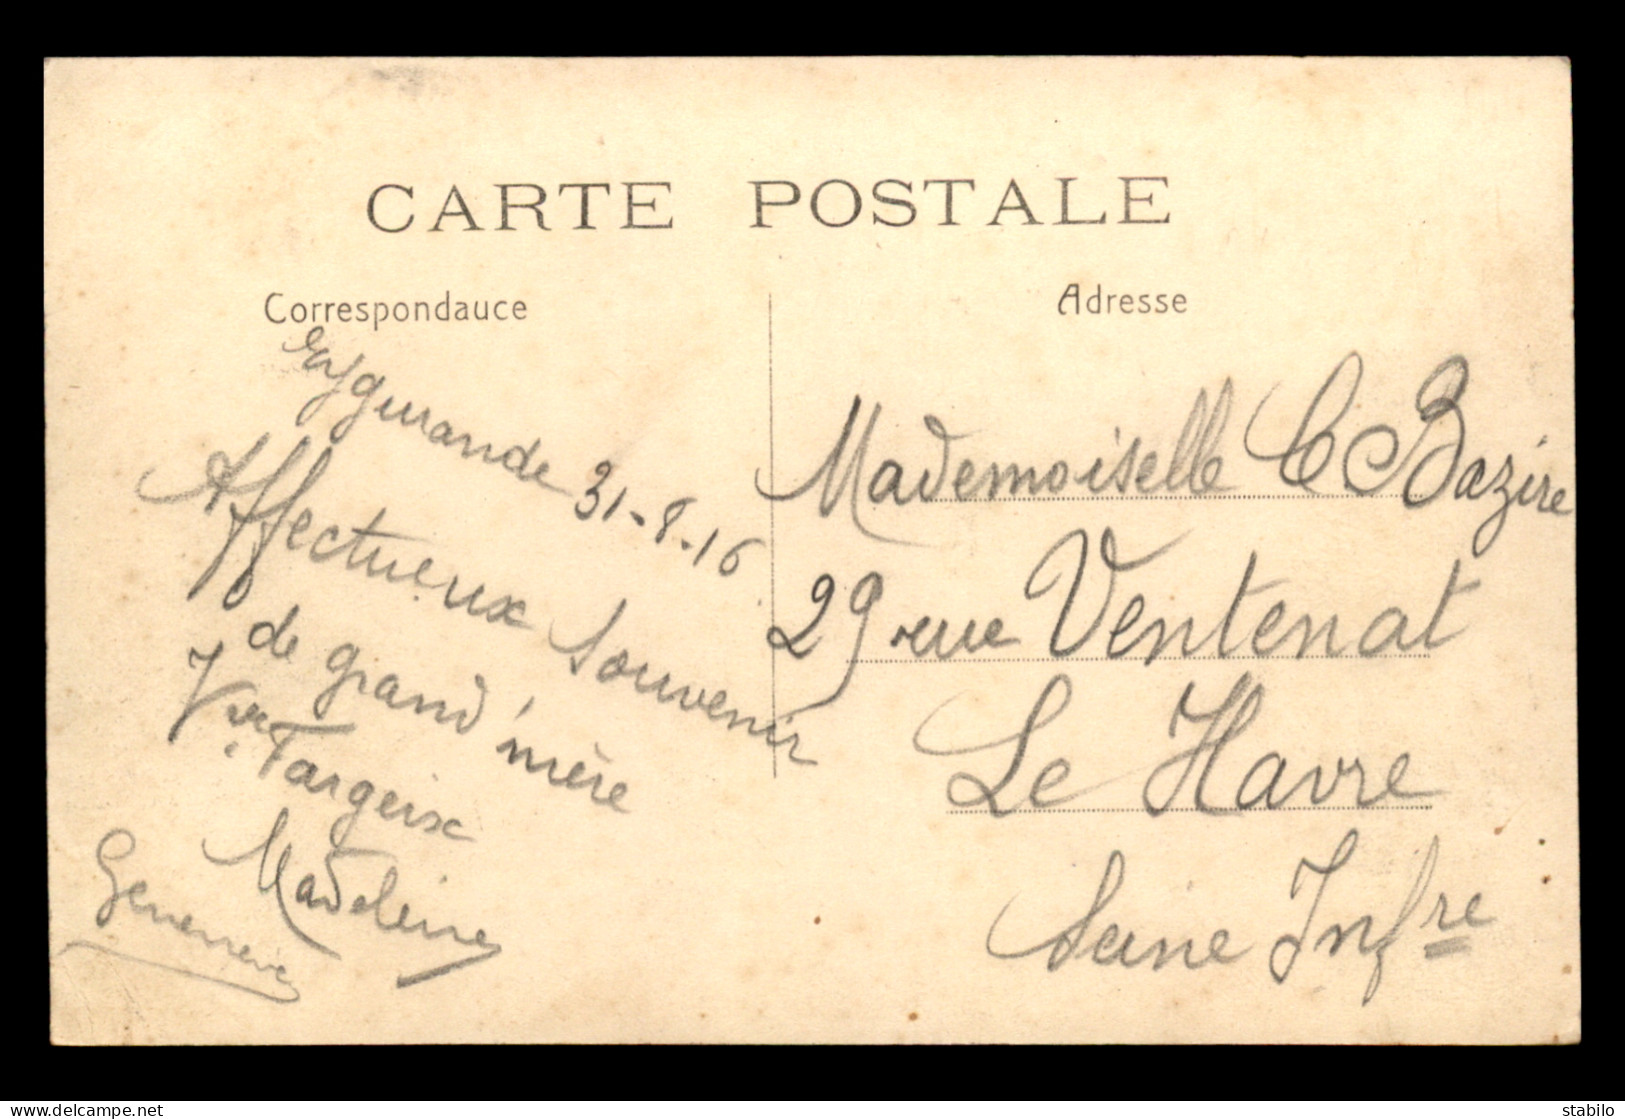 CARTE POSTALE
Correspondauce
Eygurande 31-8-16
Affectueux souvenir
de grand'mère
Vve Fargeix
Madeleine
Geneviève
Adresse
Mademoiselle C Bazire
29 rue Ventenat
Le Havre
Seine Infre
delcampe.net
stabilo